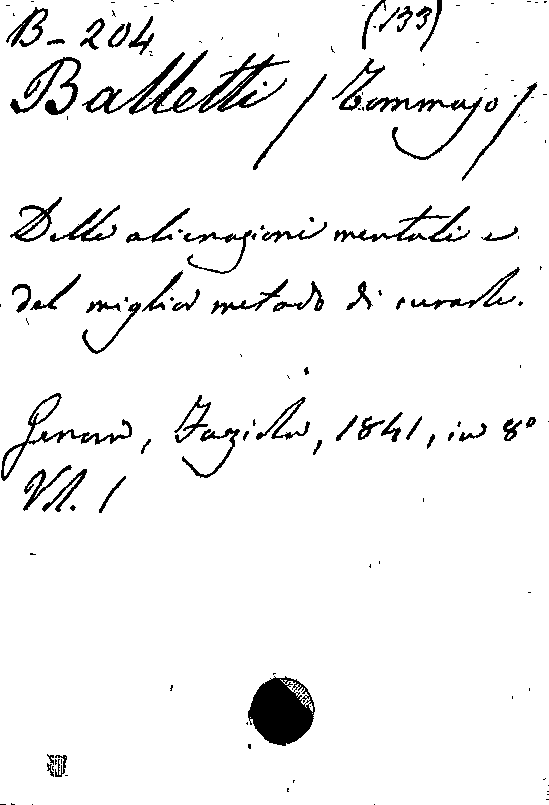 B-204 (133)
Balletti / Tommaso /
Delle alienazioni mentali e
del miglior metodo di curarle.
Genova, Faziola, 1841, in 8°
Vol. 1